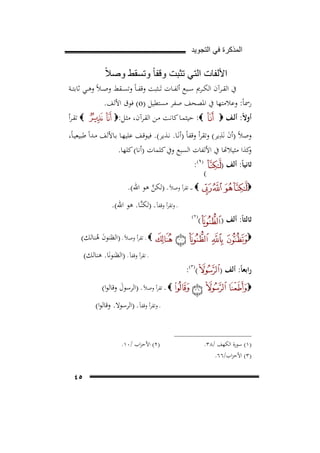 المذكرة في التجويد
الألفات التي تثبت وقفاً وتسقط وصلاً
في القرآن الكريم سبع ألفات تثبت وقفاً وتسقط وصلاً وهي ثابتة
رسماً: وعلامتها في المصحف صفر مستطيل (0) فوق الألف.
أولاً: ألف ﴿ أَنَا۠ ﴾: حيثما كانت من القرآن، مثل: ﴿ أَنَا۠ نَذِيرٌ ﴾ تقرأ
وصلاً (أنَ نَذير) وتقرأ وقفاً (أنا. نذير). فيوقف عليها بالألف مداً طبيعياً،
وكذا مثيلاتها في الألفات السبع وفي كلمات (أنا) كلها.
ثانياً: ألف (لَّٰكِنَّا۠)(١):
﴿ لَّٰكِنَّا۠ هُوَ ٱللَّهُ رَبِّى ﴾ ـ تقرأ وصلاً. (لكنَّ هو الله).
ـ وتقرأ وقفاً. (لكنَّا. هو الله).
ثالثاً: ألف (ٱلظُّنُونَا۠)(٢)
﴿ وَتَظُنُّونَ بِٱللَّهِ ٱلظُّنُونَا۠ ۝ هُنَالِكَ ﴾. تقرأ وصلاً. (الظنونَ هُنالك)
ـ تقرأ وقفاً. (الظنونَا. هنالك)
رابعاً: ألف (ٱلرَّسُولَا۠)(٣):
﴿ وَأَطَعْنَا ٱلرَّسُولَا۠ ۝ وَقَالُوا۟ ﴾ ـ تقرأ وصلاً. (الرسولَ وقالوا)
ـ وتقرأ وقفاً. (الرسولا. وقالوا)
(١) سورة الكهف /٣٨. (٢) الأحزاب /١٠.
(٣) الأحزاب/٦٦.
٤٥